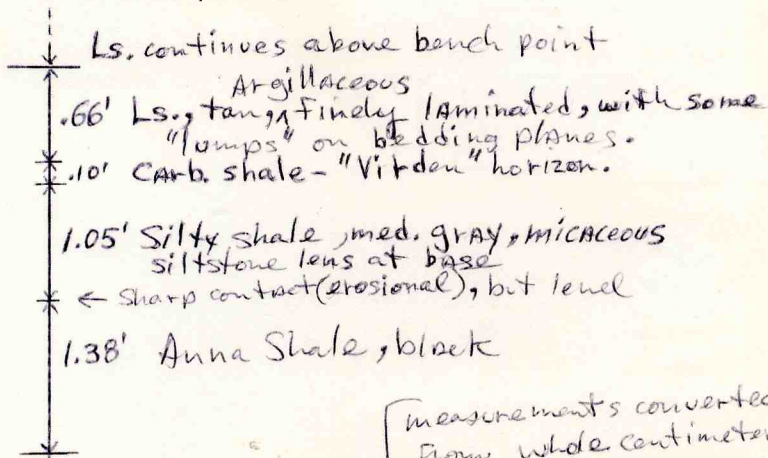 Ls. continues above bench point
Argillaceous
.66' Ls., tan, ^ finely laminated, with some
"lumps" on bedding planes.
.10' Carb. shale - "Virden" horizon.
1.05' Silty shale, med. gray, micaceous
siltstone lens at base
← Sharp contact (erosional), but level
1.38' Anna Shale, black
[measurements converted
from whole centimeter